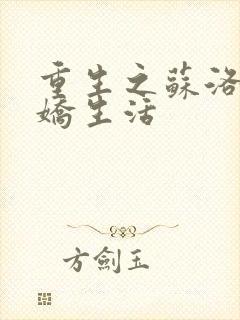 重生之蘇洛
嬌生活
方劍玉